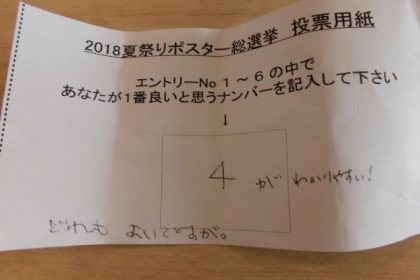 2018夏祭りポスター総選挙 投票用紙
エントリーNo 1～6の中で
あなたが1番良いと思うナンバーを記入して下さい
↓
4 が わかりやすい!
どれも よいですが。